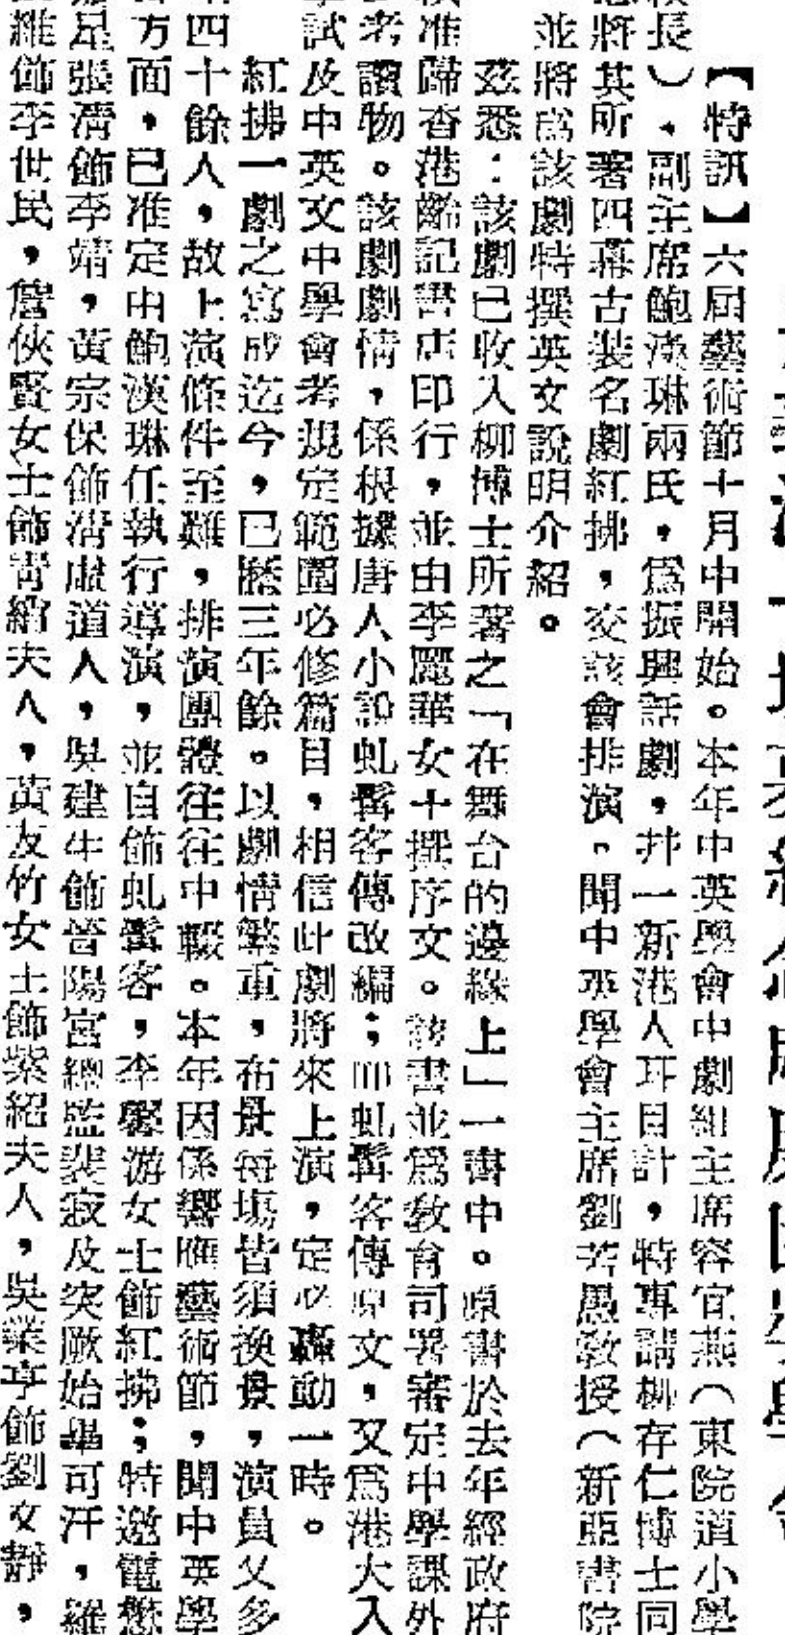 【特訊】六屆藝術節十月中開始。本年中英學會中劇組主席容宜燕（東院道小學
校長）、副主席鮑漢琳兩氏，爲振興話劇，幷一新港人耳目計，特專請柳存仁博士同
將其所著四幕古裝名劇紅拂，交該會排演。聞中英學會主席劉若愚敎授（新亞書院
並將爲該劇特撰英文說明介紹。
茲悉：該劇已收入柳博士所著之「在舞台的邊緣上」一書中。原書於去年經政府
准歸香港齡記書店印行，並由李麗華女士撰序文。該書並爲敎育司署審定中學課外
考讀物。該劇劇情，係根據唐人小說虬髯客傳改編；而虬髯客傳原文，又爲港大入
試及中英文中學會考規定範圍必修篇目，相信此劇將來上演，定必轟動一時。
紅拂一劇之寫成迄今，已歷三年餘。以劇情繁重，布景每場皆須換景，演員又多
四十餘人，故上演條件至難，排演團體往往中輟。本年因係響應藝術節，聞中英學
方面，已准定由鮑漢琳任執行導演，並自飾虬髯客，李馨游女士飾紅拂；特邀電懋
星張清飾李靖，黃宗保飾清虛道人，吳建牛飾晉陽宮總監裴寂及突厥始畢可汗，羅
維飾李世民，詹俠賢女士飾靑繒夫人，黃友竹女士飾紫紹夫人，吳業亨飾劉文靜，